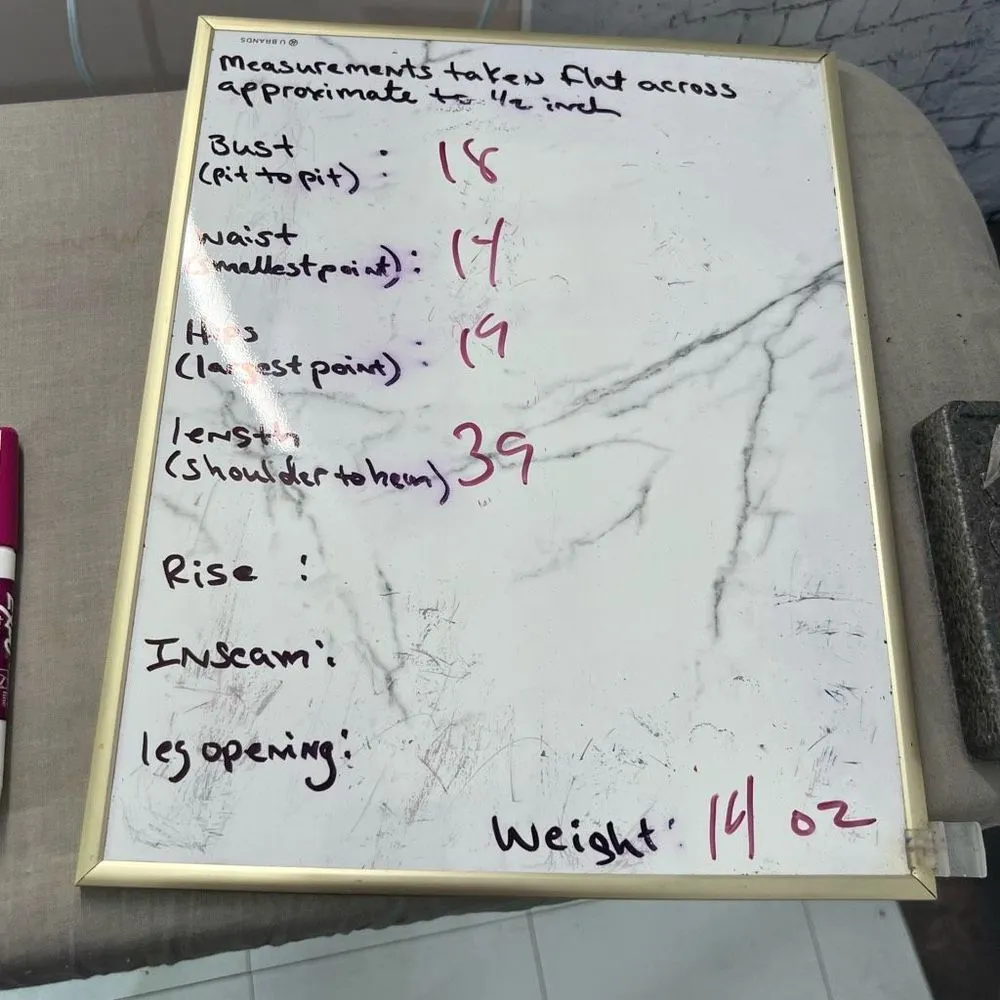 U BRANDS
Measurements taken flat across
approximate to 1/2 inch
Bust
(pit to pit) : 18
waist
(smallest point) : 14
Hips
(largest point) : 19
length
(shoulder to hem) 39
Rise :
Inseam :
leg opening :
Weight : 14 oz